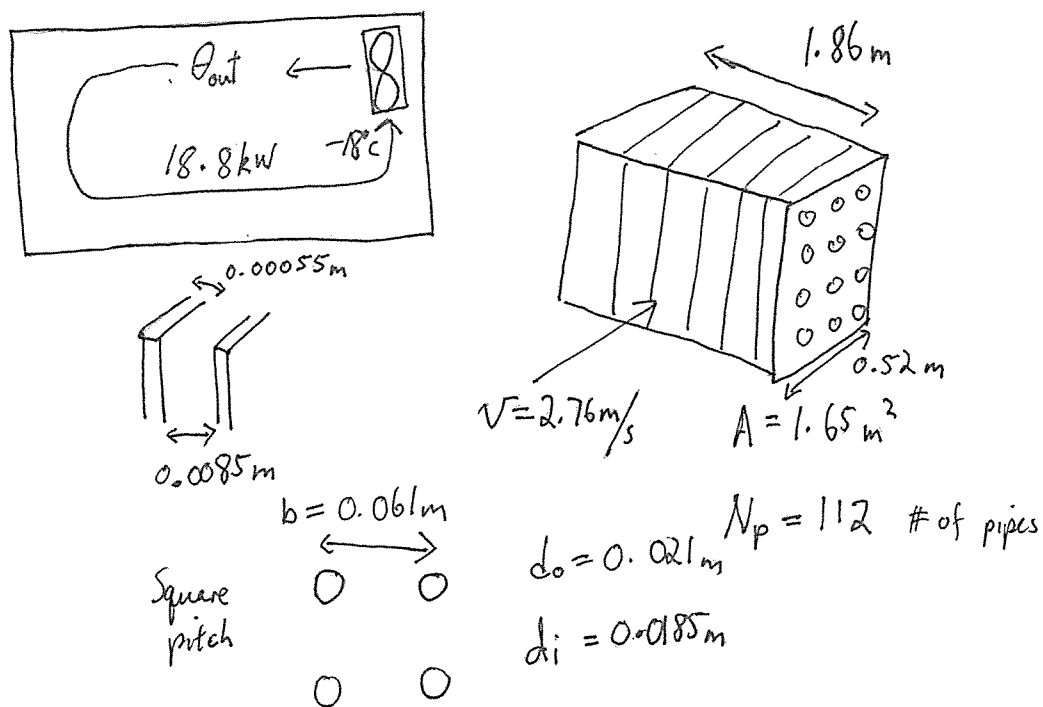 θout
18.8kW
-18°c
1.86m
0.00055m
0.0085m
V=2.76m/s
0.52m
A=1.65m²
b=0.061m
Square
pitch
do=0.021m
di=0.0185m
Np=112 # of pipes